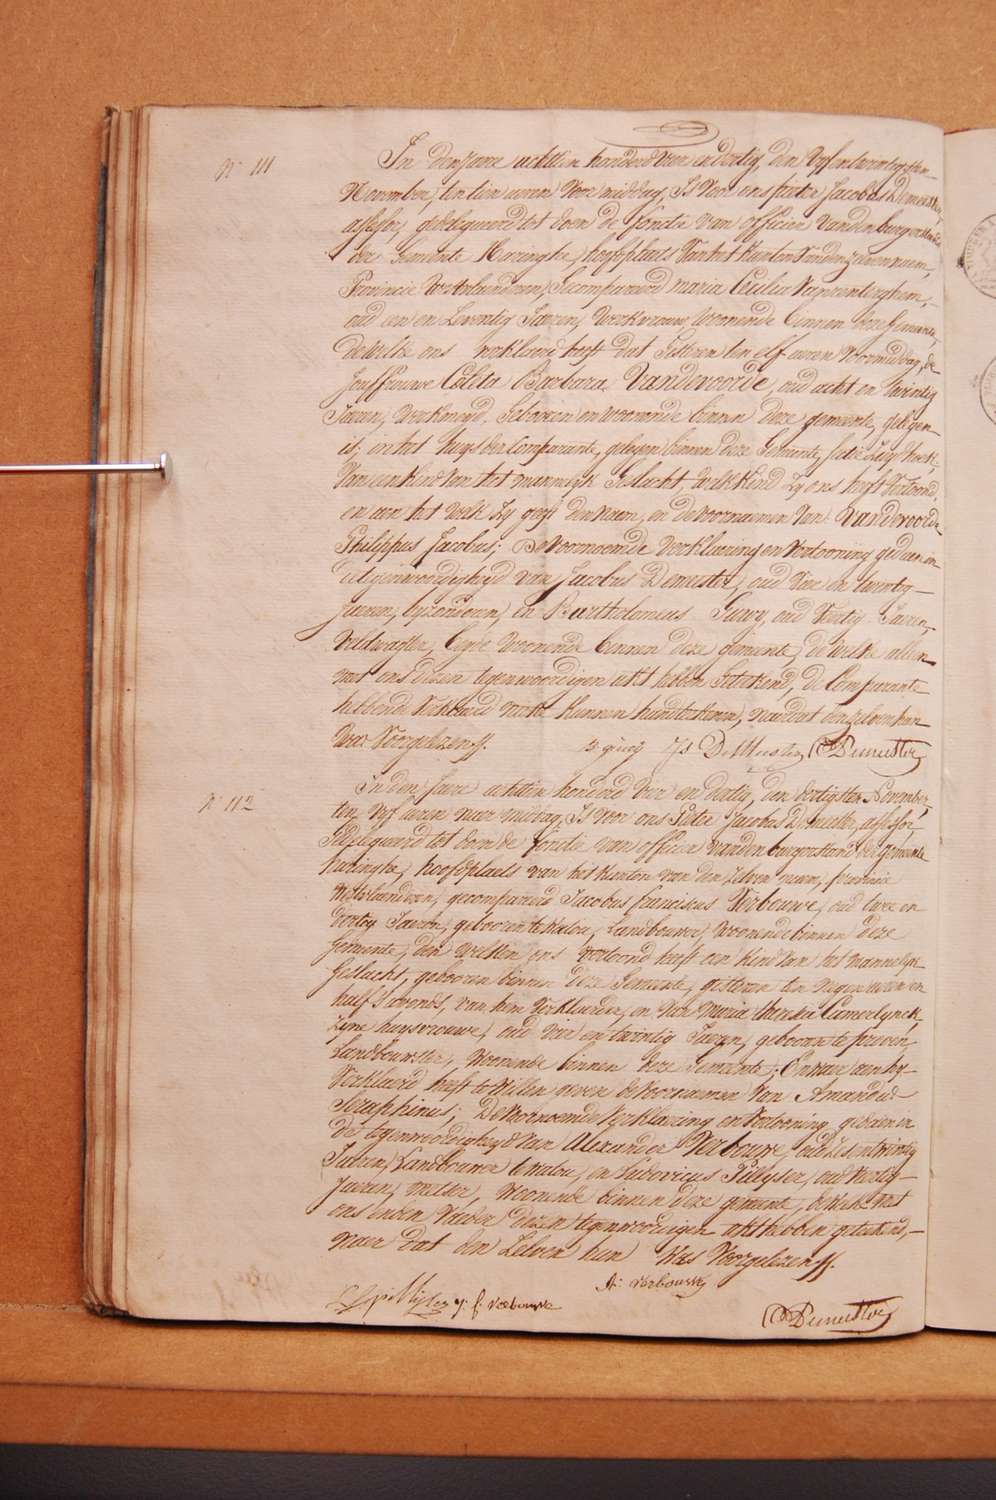 N° 111
In den Jaere achttien honderd vier en dertig, den vyfentwintigsten
November, ten tien uren voor middag, Is voor ons pieter Jacobus Demeester,
assessor, gedelegueerd tot doen de fonctie van officier vanden burgerstand
der Gemeente Haringhe, hoofdplaets van het kanton van den zelven naem,
Provincie Westvlaenderen, Gecompareerd maria Cecilia Vanpeenberghem,
oud een en seventig Jaeren, werkvrouw, woonende binnen deze Gemeente,
de welke ons verklaerd heeft dat Gisteren ten elf uren voormiddag, de
Jouffrouwe Coleta Barbara Vandevoorde, oud acht en twintig
Jaeren, werkmeyd, Gebooren en woonende binnen deze gemeente, gelegen
is, in het huys der Comparante, gelegen binnen deze Gemeente,
van een kind van het mannelyk Geslacht, welk kind zy ons heeft vertoond,
en aen het welk zy geeft den naem, en de voornaemen van Vandevoorde
Philippus Jacobus; De voornoemde verklaering en vertooning gedaen in
de tegenwoordigheyd van Jacobus Demeester, oud vier en twintig
Jaeren, byzonderen, en Bartholomeus oud veertig Jaeren,
veldwagter, beyde woonende binnen deze gemeente, de welke alleen
met ons dezen tegenwoordigen akt hebben Geteekend, de Comparante
hebbende verklaerd niet te kunnen handteekenen, naer dat den zelven hun
was Voorgelezen ff.
Js DeMeester PJDemeester
N° 112
In den Jaere achttien honderd vier en dertig, den dertigsten November,
ten vyf uren naer middag, Is voor ons Pieter Jacobus Demeester, assessor
Gedelegueerd tot doen de fonctie van officier vanden burgerstand der gemeente
haringhe, hoofdplaets van het kanton van den zelven naem, provincie
Westvlaenderen, gecompareerd Jacobus franciscus Verbouwe, oud twee en
dertig Jaeren, gebooren te Watou, Landbouwer, woonende binnen deze
Gemeente, den welken ons vertoond heeft een kind van het mannelyk
Geslacht, gebooren binnen deze Gemeente, gisteren ten negen uren en
half s'avonds, van hem verklaerder, en van Maria theresia Camerlynck,
zyne huysvrouwe, oud vier en twintig Jaeren, gebooren te proven,
Landbouwster, woonende binnen deze Gemeente; En waer aen hy
Verklaerd heeft te willen geven de voornaemen van Amandus
Seraphinus; De voornoemde verklaering en vertooning gedaen in
de tegenwoordigheyd van Alexander Verbouwe, oud zesentwintig
Jaeren, Landbouwer te watou, en Ludovicus Pillyser, oud veertig
Jaeren, melser, woonende binnen deze gemeente, de welke met
ons en den Vaeder dezen tegenwoordigen akt hebben geteekend,
naer dat den Zelven hun Was Voorgelezen ff.
L Spillyser J: f. verbouwe A: verbouwe
PJDemeester